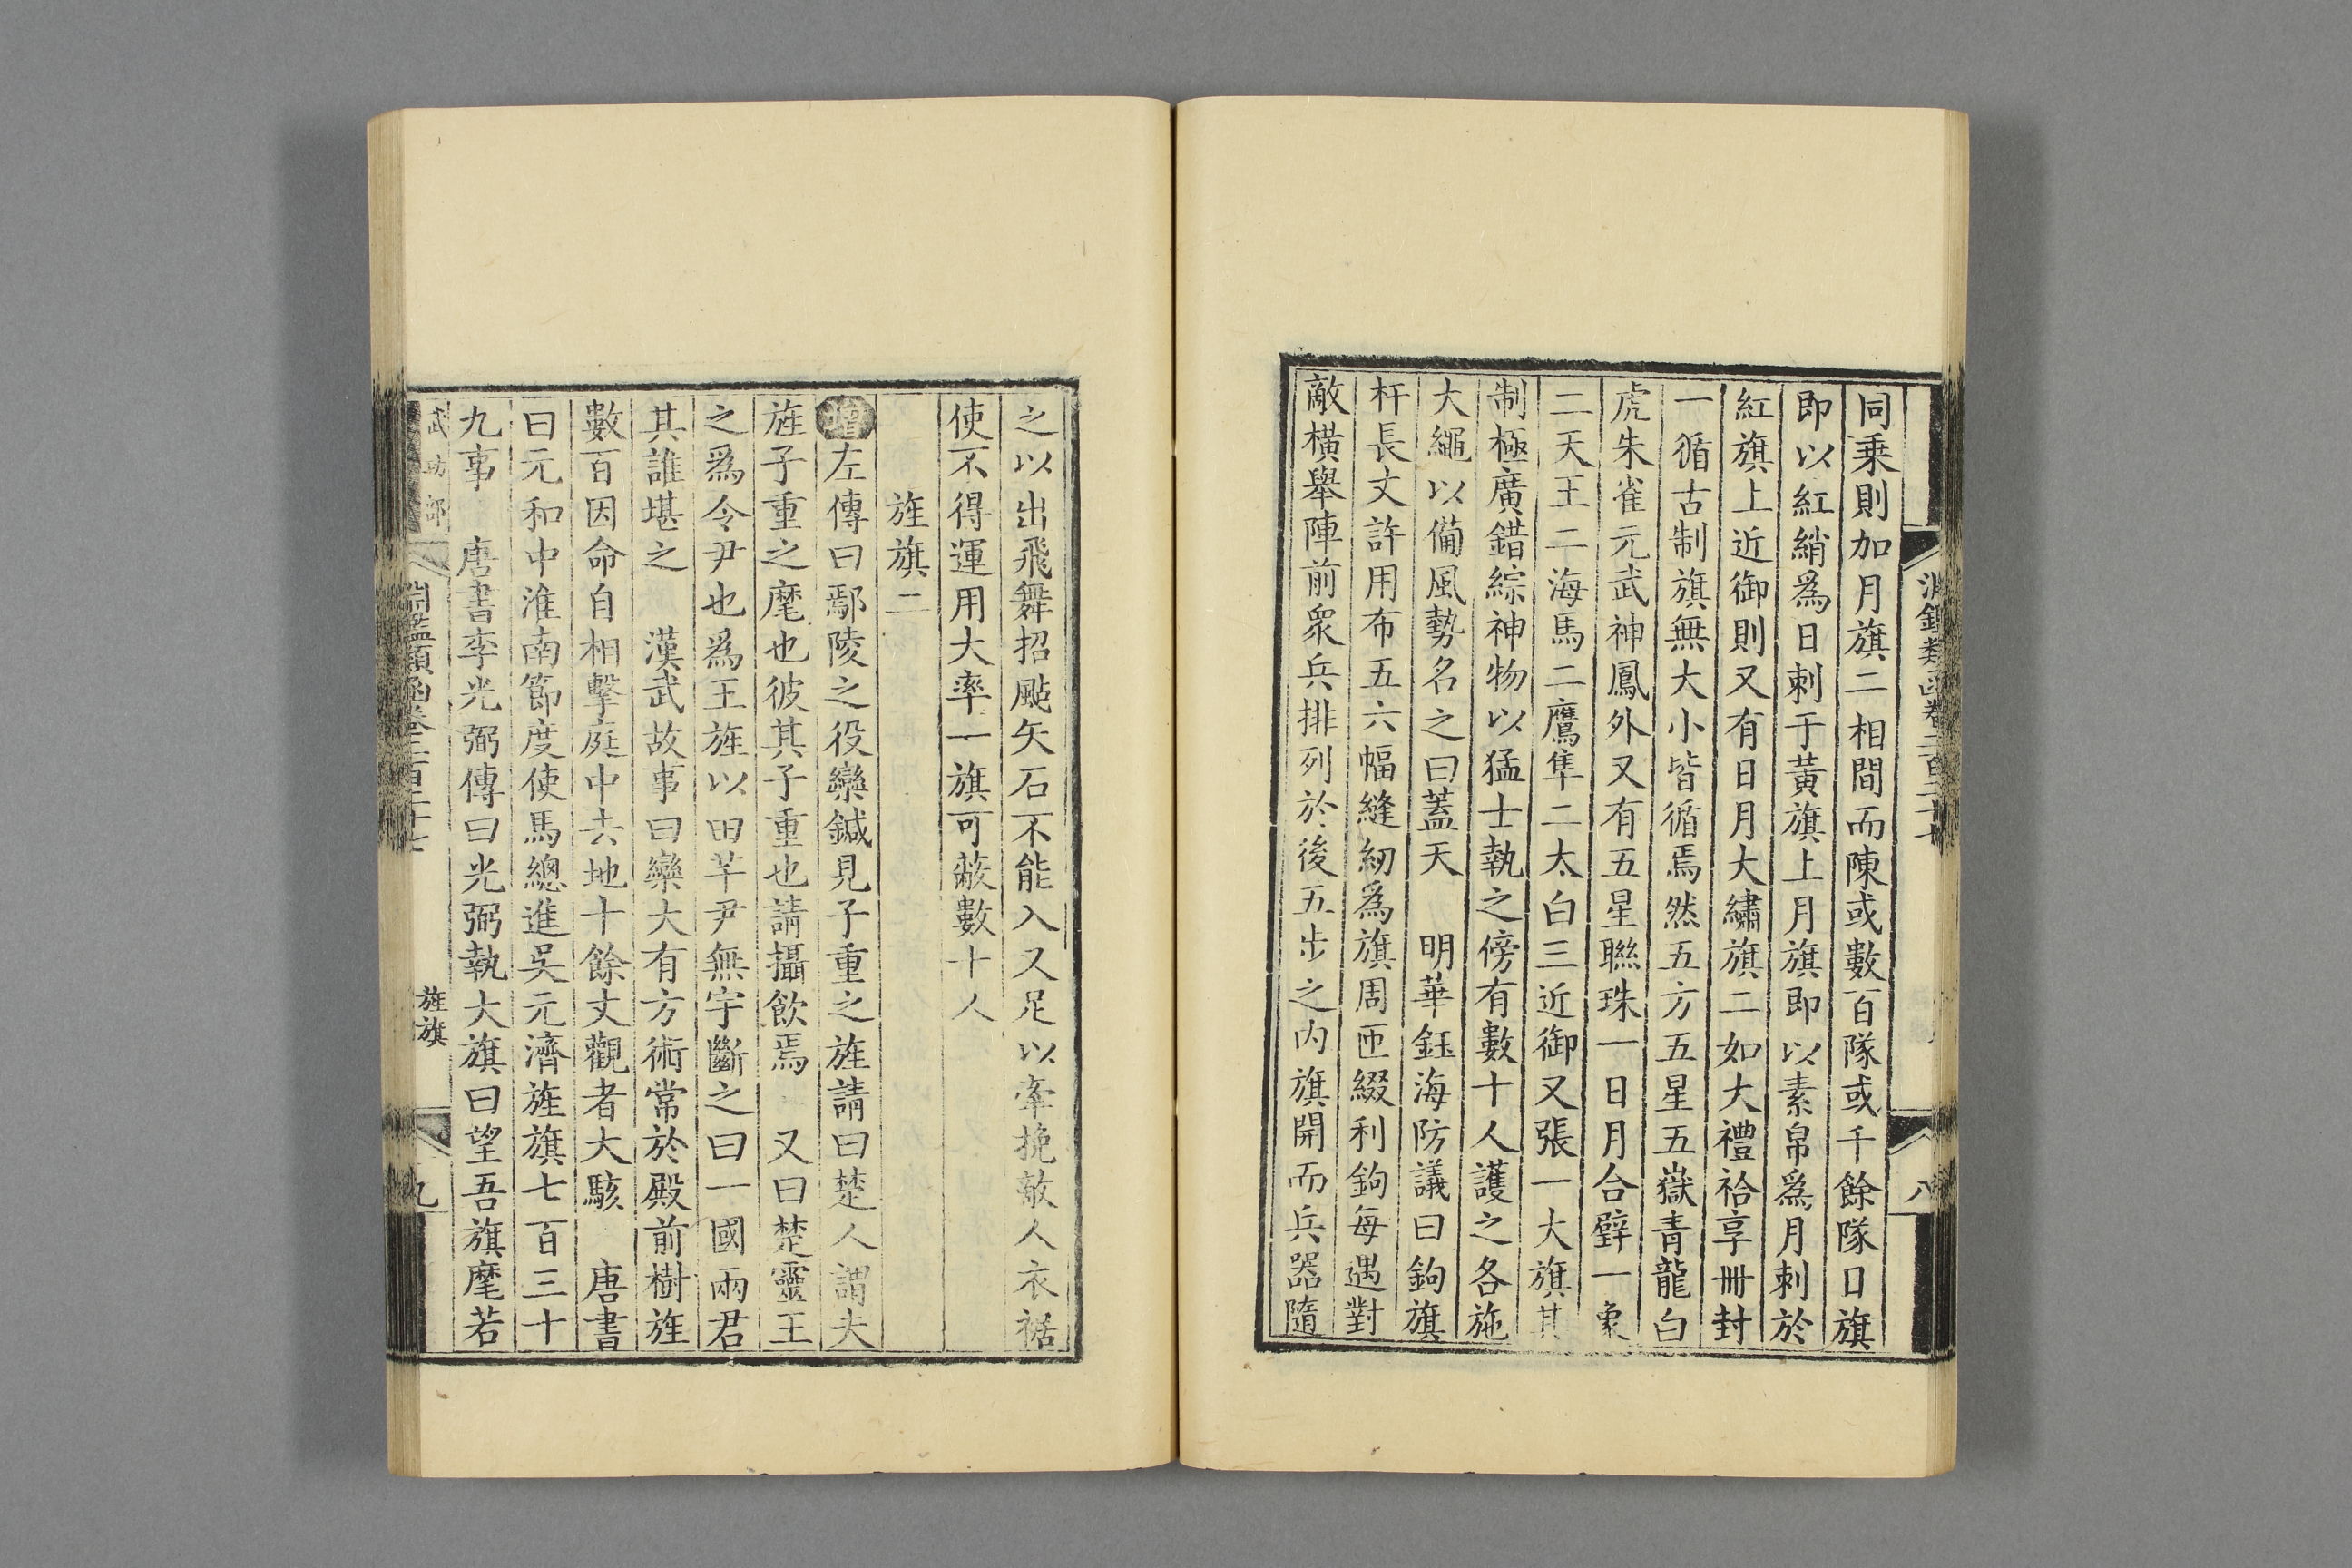 同乗則加月旗二相間而陳或數百隊或千餘隊日旗
即以紅綃爲日刺于黃旗上月旗即以素帛爲月刺於
紅旗上近御則又有日月大繡旗二如大禮祫享冊封
一循古制旗無大小皆循焉然五方五星五嶽青龍白
虎朱雀元武神鳳外又有五星聯珠一日月合璧一象
二天王二海馬二鷹隼二太白三近御又張一大旗其
制極廣錯綜神物以猛士執之傍有數十人護之各施
大繩以備風勢名之曰蓋天　明華鈺海防議曰鉤旗
杆長丈許用布五六幅縫紉爲旗周匝綴利鉤每遇對
敵橫舉陣前衆兵排列於後五步之内旗開而兵器隨
之以出飛舞招颭矢石不能入又足以牽挽敵人衣裾
使不得運用大率一旗可蔽數十人
旌旗二
增左傳曰鄢陵之役欒鍼見子重之旌請曰楚人謂夫
旌子重之麾也彼其子重也請攝飲焉　又曰楚靈王
之爲令尹也爲王旌以田芊尹無宇斷之曰一國兩君
其誰堪之　漢武故事曰欒大有方術常於殿前樹旌
數百因命自相擊庭中去地十餘丈觀者大駭　唐書
曰元和中淮南節度使馬總進吳元濟旌旗七百三十
九事　唐書李光弼傳曰光弼執大旗曰望吾旗麾若
武功部　淵鑑類函卷二百二十七　旌旗　九